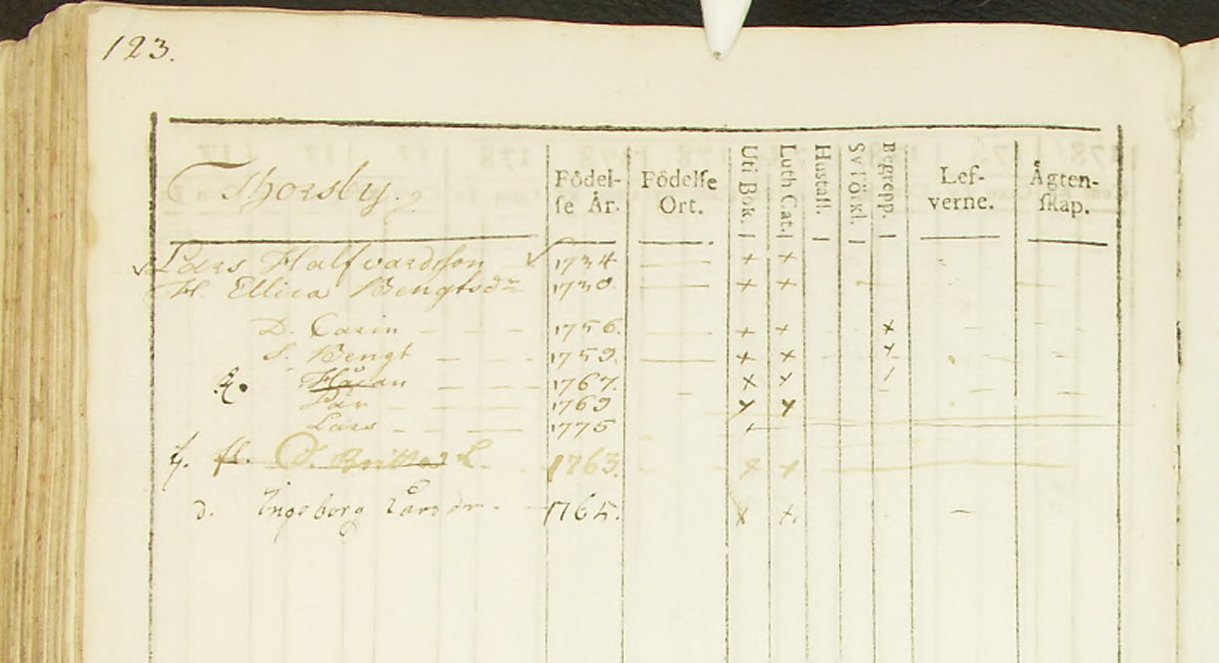 123.
Thorsby. Födel- se År. Födelse Ort. Uti Bok. Luth Cat. Hustafl. Sv Förkl. Begrepp. Lef- verne. Ägten- skap.
Lars Halfvardsson 1734
H. Ellica Bengtsdr 1730
D. Carin 1756.
S. Bengt 1759.
Håcan 1767.
Pär 1769
Lars 1775
fl. D. L. 1763.
d. Ingeborg Larsdr. 1765.